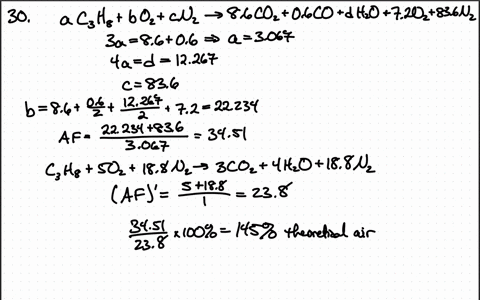 30. a C₃H₈ + bO₂ + cN₂ → 8.6CO₂ + 0.6CO + dH₂O + 7.2O₂ + 83.6N₂
3a = 8.6 + 0.6 ⇒ a = 3.067
4a = d = 12.267
c = 83.6
b = 8.6 + 0.6/2 + 12.267/2 + 7.2 = 22.234
AF = (22.234 + 83.6)/3.067 = 34.51
C₃H₈ + 5O₂ + 18.8N₂ → 3CO₂ + 4H₂O + 18.8N₂
(AF)' = (5 + 18.8)/1 = 23.8
34.51/23.8 × 100% = 145% theoretical air